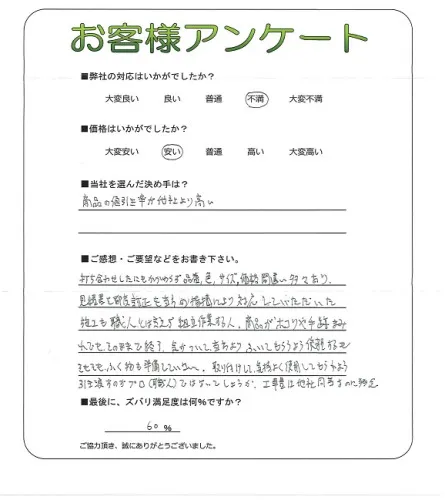 お客様アンケート
■弊社の対応はいかがでしたか?
大変良い 良い 普通 不満 大変不満
■価格はいかがでしたか?
大変安い 安い 普通 高い 大変高い
■当社を選んだ決め手は?
商品の値引き率が他社より高い
■ご感想・ご要望などをお書き下さい。
打ち合わせしたにもかかわらず品番、色、サイズ、価格間違い多々あり、
見積書を都度訂正を当方の指摘により対応していただいた
施工も職人とは言えず組立作業する人、商品がホコリや手跡まみ
れでも、そのままで終了、気がついて、当方より、ふいてもらうよう依頼
それでも、ふく物も準備していない。取り付けして気持よく使用してもらうよう
引き渡すのがプロ(職人)ではないでしょうか、工事費は他社同等なのに残念
■最後に、ズバリ満足度は何%ですか?
60 %
ご協力頂き、誠にありがとうございました。